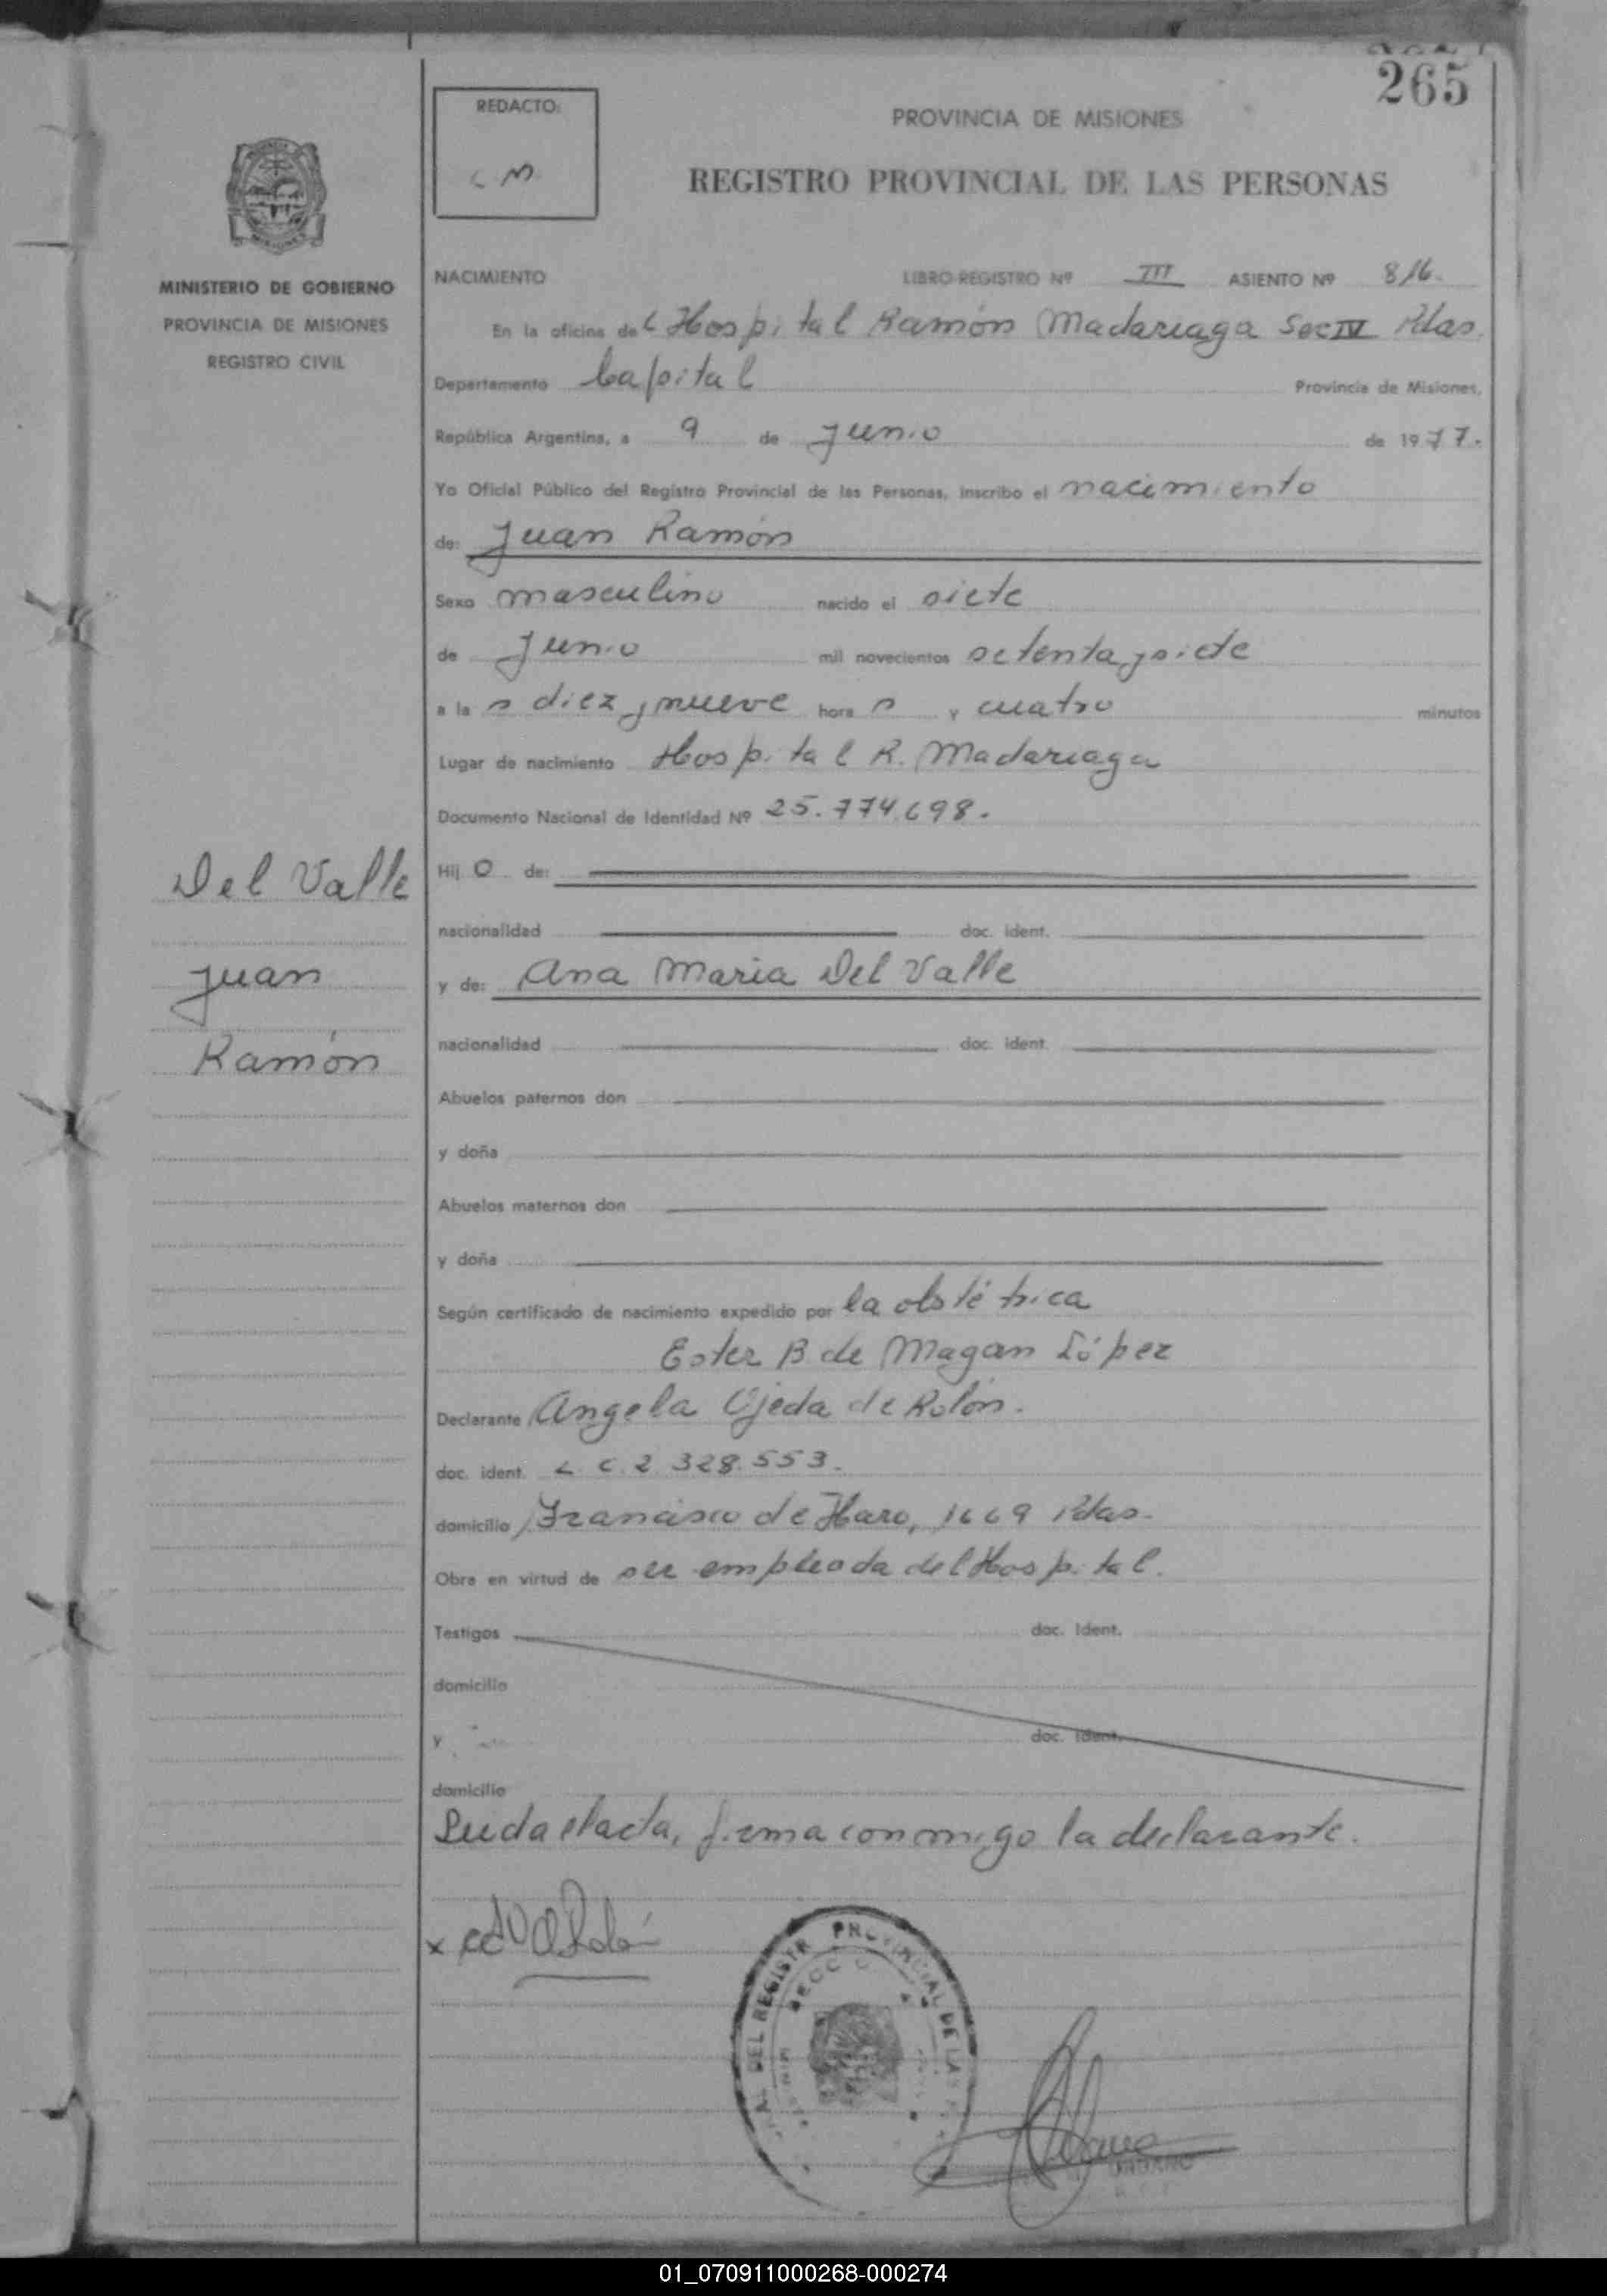 265
REDACTO:
C M.
PROVINCIA DE MISIONES
REGISTRO PROVINCIAL DE LAS PERSONAS
MINISTERIO DE GOBIERNO
PROVINCIA DE MISIONES
REGISTRO CIVIL
NACIMIENTO LIBRO-REGISTRO Nº III ASIENTO Nº 816.
En la oficina del Hospital Ramón Madariaga Sec IV Pdas.
Departamento Capital Provincia de Misiones,
República Argentina, a 9 de junio de 1977.
Yo Oficial Público del Registro Provincial de las Personas, inscribo el nacimiento
de: Juan Ramón
Sexo masculino nacido el siete
de Junio mil novecientos setenta y siete
a las diez y nueve horas y cuatro minutos
Lugar de nacimiento Hospital R. Madariaga
Documento Nacional de Identidad Nº 25.774.698.
Del Valle
Juan
Ramón
Hijo de:
nacionalidad doc. ident.
y de: Ana Maria Del Valle
nacionalidad doc. ident.
Abuelos paternos don
y doña
Abuelos maternos don
y doña
Según certificado de nacimiento expedido por la obstétrica
Ester B de Magan López
Declarante Angela Ojeda de Rolón.
doc. ident. L.C. 2.328.553.
domicilio Francisco de Haro, 1669 Pdas.
Obra en virtud de ser empleada del Hospital.
Testigos doc. Ident.
domicilio
y doc. Ident.
domicilio
Leida el acta, firma conmigo la declarante.
x Rolón
DEL REGISTR PROVINCIAL DE LAS
URBANO
01_070911000268-000274